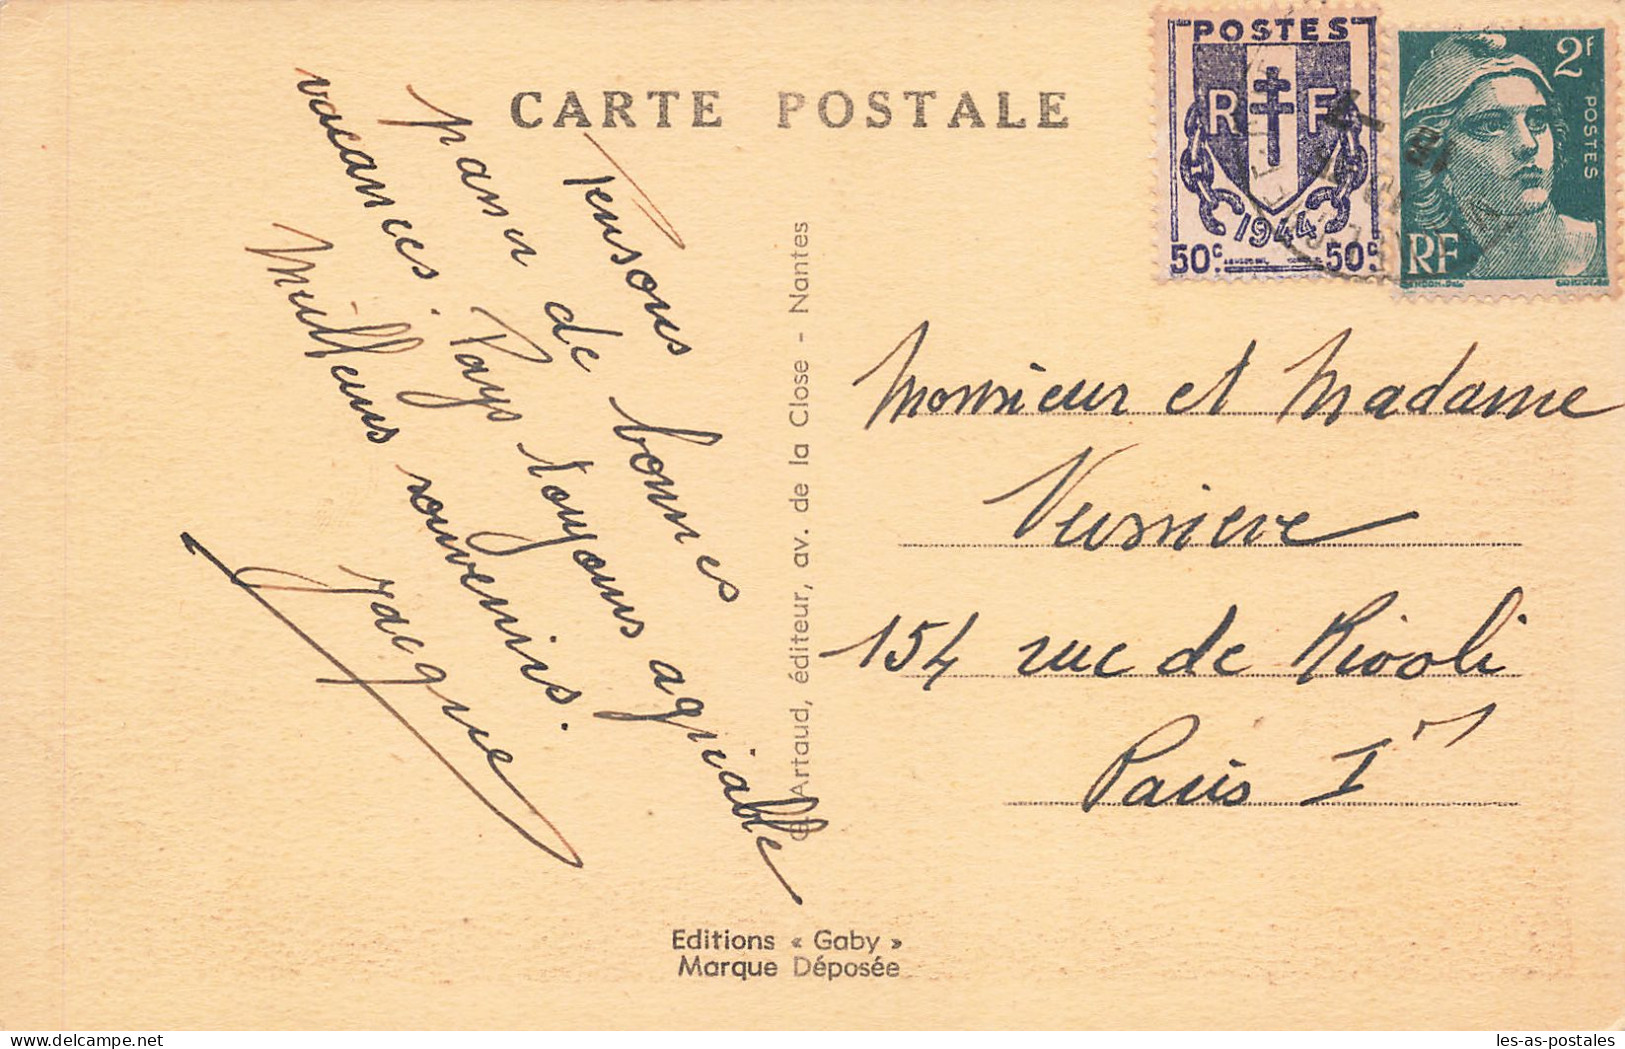 CARTE POSTALE
Pensons
passer de bonnes
vacances. Pays toujours agréable
Meilleurs souvenirs.
Jacques
G. Artaud, éditeur, av. de la Close - Nantes
Editions « Gaby »
Marque Déposée
POSTES
RF
1944
50c 50c
2f
POSTES
RF
GANDON
Monsieur et Madame
154 rue de Rivoli
Paris 1er
les-as-postales